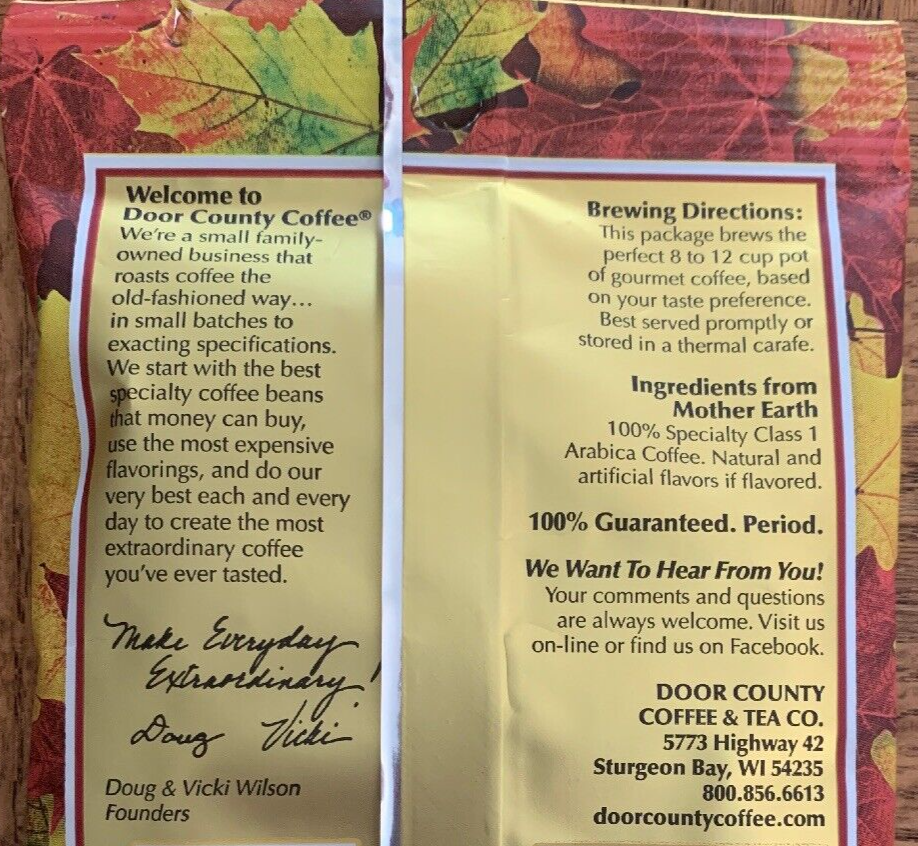 Welcome to
Door County Coffee®
We're a small family-
owned business that
roasts coffee the
old-fashioned way...
in small batches to
exacting specifications.
We start with the best
specialty coffee beans
that money can buy,
use the most expensive
flavorings, and do our
very best each and every
day to create the most
extraordinary coffee
you've ever tasted.
Make Everyday
Extraordinary!
Doug Vicki
Doug & Vicki Wilson
Founders
Brewing Directions:
This package brews the
perfect 8 to 12 cup pot
of gourmet coffee, based
on your taste preference.
Best served promptly or
stored in a thermal carafe.
Ingredients from
Mother Earth
100% Specialty Class 1
Arabica Coffee. Natural and
artificial flavors if flavored.
100% Guaranteed. Period.
We Want To Hear From You!
Your comments and questions
are always welcome. Visit us
on-line or find us on Facebook.
DOOR COUNTY
COFFEE & TEA CO.
5773 Highway 42
Sturgeon Bay, WI 54235
800.856.6613
doorcountycoffee.com